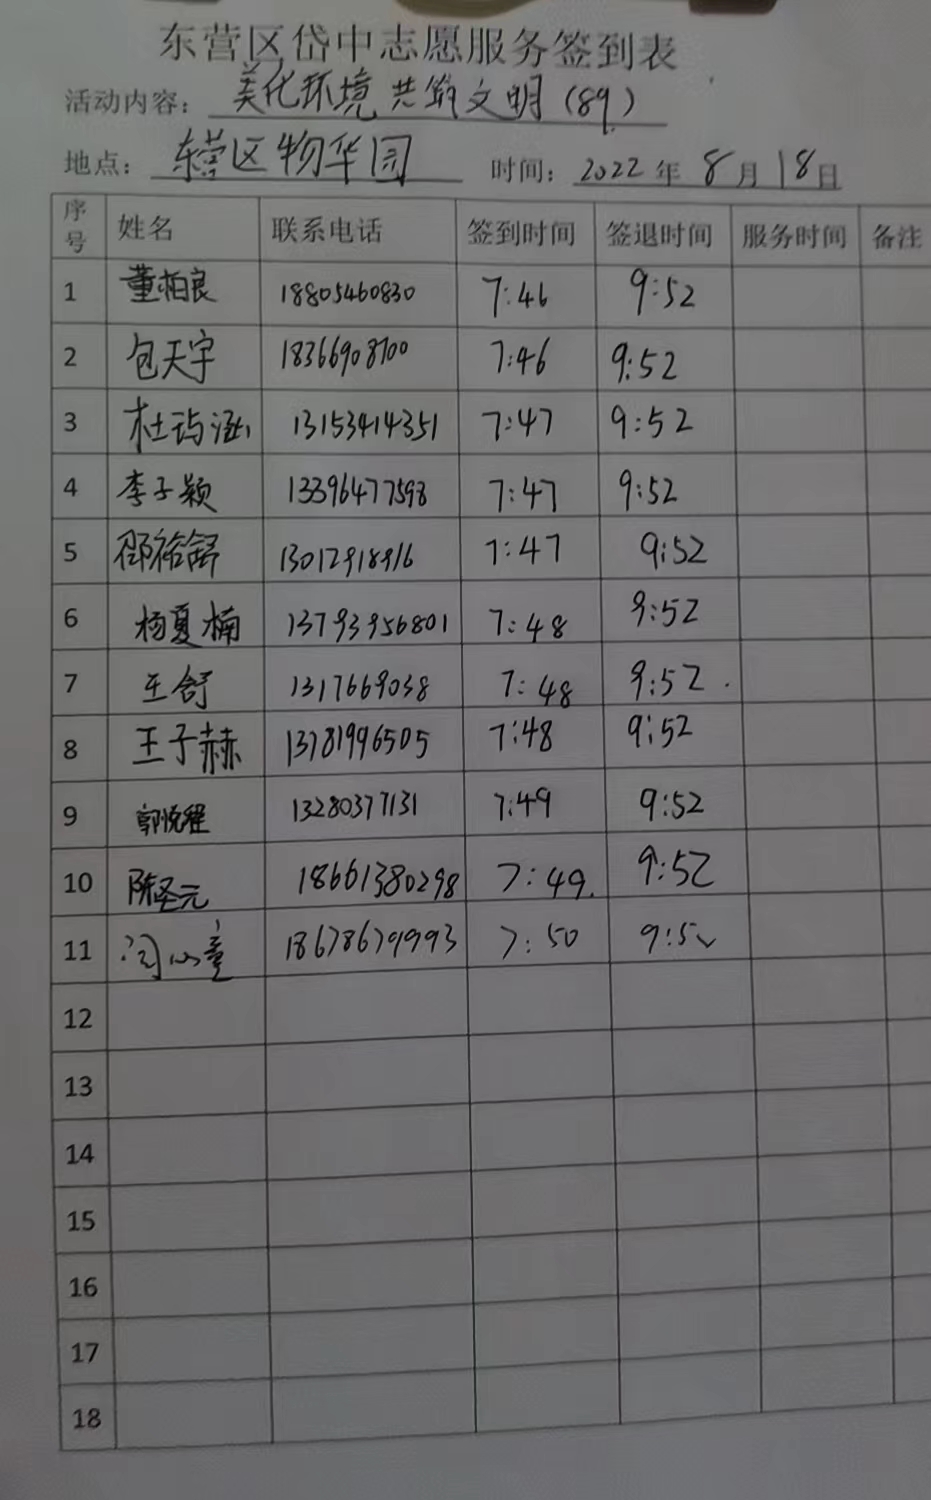 东营区岱中志愿服务签到表
活动内容：美化环境 共筑文明（89）
地点：东营区物华园 时间：2022年8月18日
序号 姓名 联系电话 签到时间 签退时间 服务时间 备注
1 董柏良 18805460830 7:46 9:52
2 包天宇 18366908700 7:46 9:52
3 杜玙涵 13153414351 7:47 9:52
4 李子颖 13396477598 7:47 9:52
5 邵裕舒 13012918916 7:47 9:52
6 杨夏楠 13793956801 7:48 9:52
7 王舒 1317669038 7:48 9:52
8 王子赫 13781996505 7:48 9:52
9 郭悦 13280377131 7:49 9:52
10 陈圣元 18661380298 7:49 9:52
11 闫心童 18678679993 7:50 9:52
12
13
14
15
16
17
18